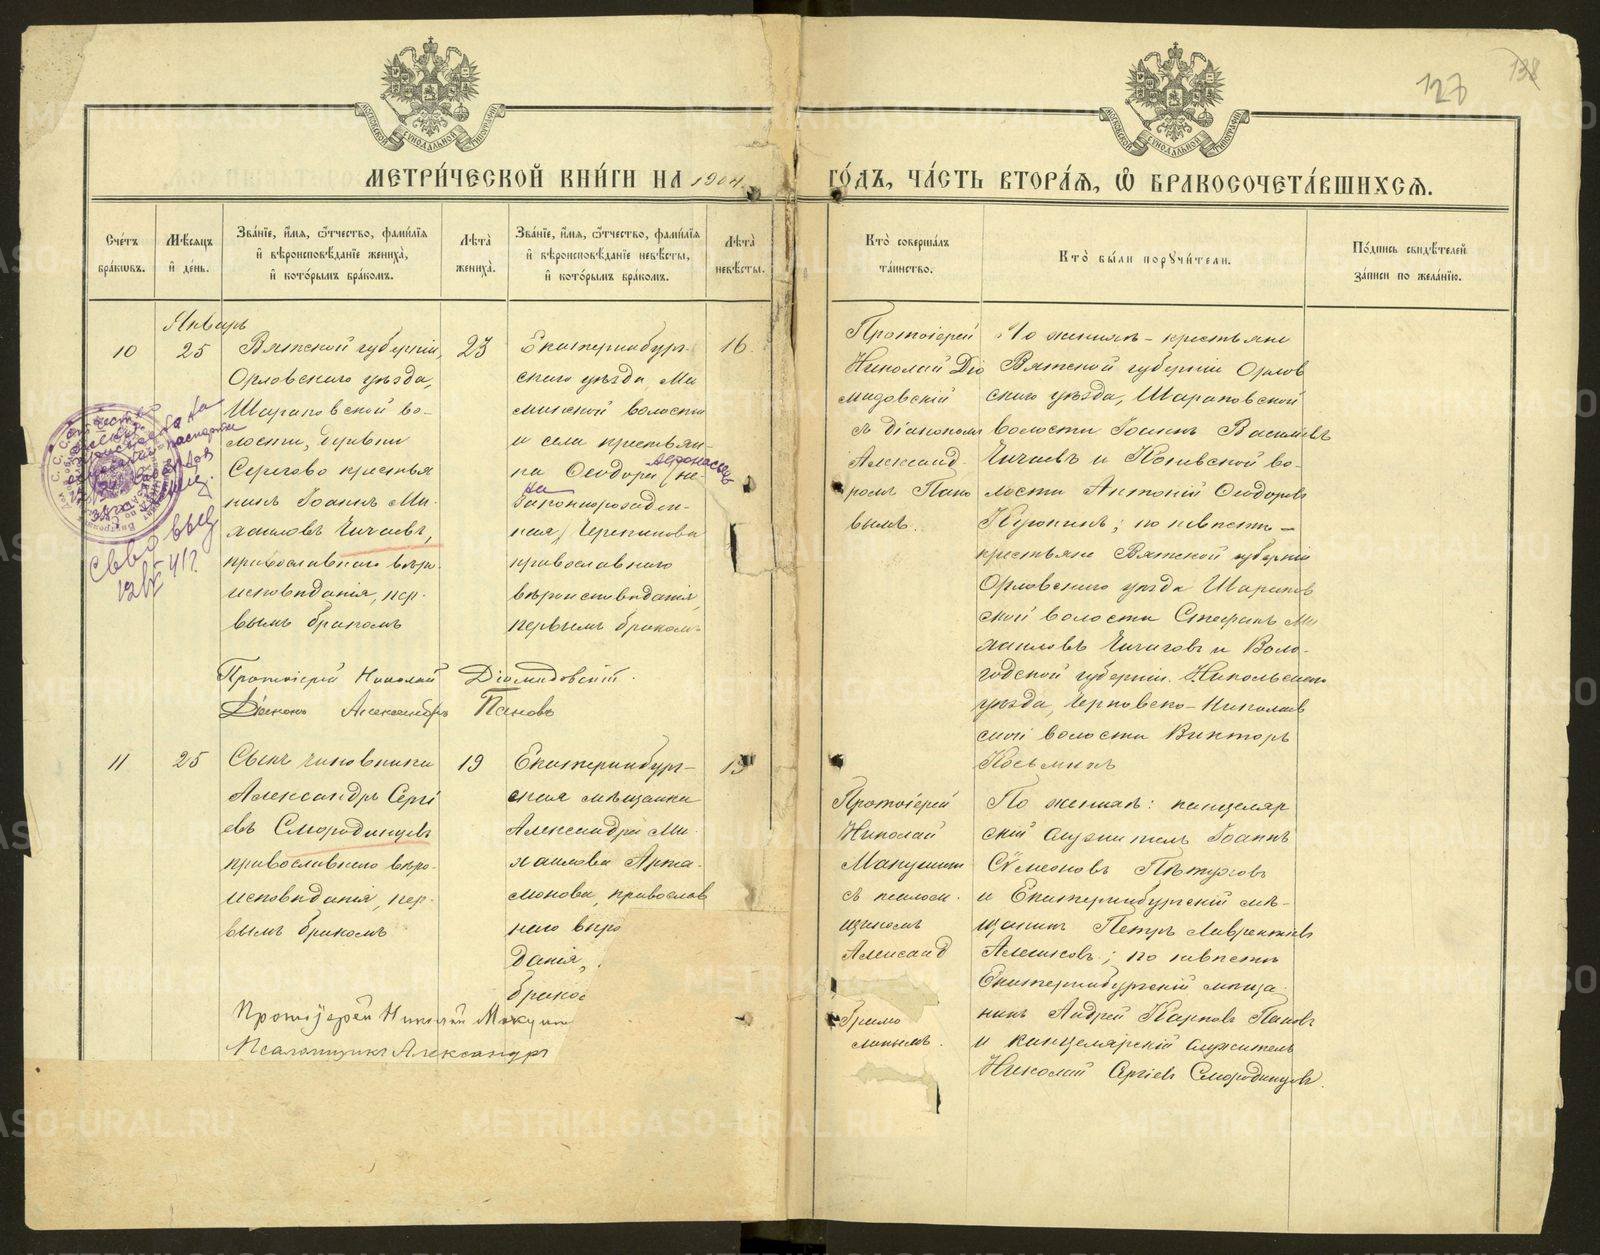 127
138
МОСКОВСКОЙ СѴНОДАЛЬНОЙ ТИПОГРАФІИ
МОСКОВСКОЙ СѴНОДАЛЬНОЙ ТИПОГРАФІИ
МЕТРИ́ЧЕСКОЙ КНИ́ГИ НА 1904 ГО́ДЪ, ЧА́СТЬ ВТОРА́Я, Ѽ БРАКОСОЧЕТА́ВШИХСѦ.
Сче́тъ бра́кѡвъ.
Мѣ́сѧцъ и҆ де́нь.
Зва́нїе, и҆́мѧ, ѻ҆́тчество, фами́лїѧ и҆ вѣроисповѣ́данїе жениха̀, и҆ кото́рымъ бра́комъ.
Лѣ́та жениха̀.
Зва́нїе, и҆́мѧ, ѻ҆́тчество, фами́лїѧ и҆ вѣроисповѣ́данїе невѣ́сты, и҆ кото́рымъ бра́комъ.
Лѣ́та невѣ́сты.
Кто̀ соверша́лъ та́инство.
Кто̀ бы́ли порꙋчи́тели.
По́дпись свидѣ́телей за́писи по жела́нїю.
Январь
10
25
Вятской губерніи,
Орловскаго уѣзда,
Шараповской во-
лости, деревни
Серегово крестья
нинъ Іоаннъ Ми-
хаиловъ Чичаевъ,
православнаго вѣро-
исповѣданія, пер-
вымъ бракомъ
23
Екатеринбург-
скаго уѣзда, Ма
минской волости
и села крестьян-
ка Ѳеодора (не-
законнорожден-
ная) Черепанова
православнаго
вѣроисповѣданія,
первымъ бракомъ
16
Протоіерей
Николай Діо
мидовскій
съ діакономъ
Александ-
ромъ Пано
вымъ.
По женихѣ – крестьяне
Вятской губерніи Орлов
скаго уѣзда, Шараповской
волости Іоаннъ Василіевъ
Чичаевъ и
волости Антоній Ѳеодоровъ
; по невѣстѣ –
крестьяне Вятской губерніи
Орловскаго уѣзда Шарапов
ской волости Стефанъ Ми
хаиловъ Чичаговъ и Воло-
годской губерніи. Никольскаго
уѣзда, Черновско-Николаев
ской волости Викторъ
Косьминъ
Протоіерей Николай Діомидовскій.
Діаконъ Александръ Пановъ
11
25
Сынъ чиновника
Александръ Сергі
евъ Смородинцевъ
православнаго вѣро-
исповѣданія, пер-
вымъ бракомъ
19
Екатеринбург-
ская мѣщанка
Александра Ми-
хаилова Арта-
монова, православ
наго вѣро
данія,
брако
19
Протоіерей
Николай
Макушин
съ псалом-
щикомъ
Александ
По женихѣ: канцеляр
скій служитель Іоаннъ
Сѵмеоновъ Пѣтуховъ
и Екатеринбургскій мѣ-
щанинъ Петръ Лаврентіевъ
; по невѣстѣ
Екатеринбургскій мѣща-
нинъ Андрей Карповъ Пановъ
и канцелярскій служитель
Николай Сергіевъ Смородинцевъ.
Протоіерей Николай Макуш
Псаломщикъ Александръ
METRIKI.GASO-URAL.RU